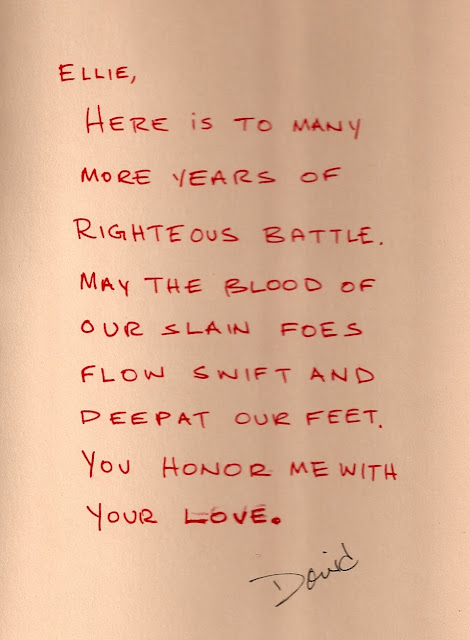 ELLIE,
HERE IS TO MANY
MORE YEARS OF
RIGHTEOUS BATTLE.
MAY THE BLOOD OF
OUR SLAIN FOES
FLOW SWIFT AND
DEEPAT OUR FEET.
YOU HONOR ME WITH
YOUR LOVE.
David